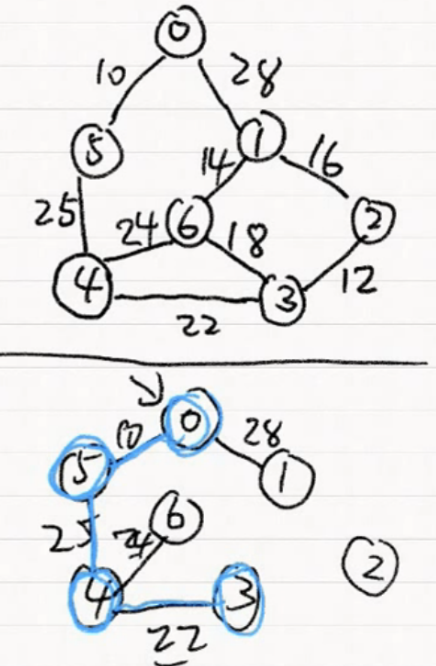 0
10 28
5 1
14 16
25 24 6 18 2
4 3 12
22
0
10 28
5 1
6
25 24 2
4 3
22